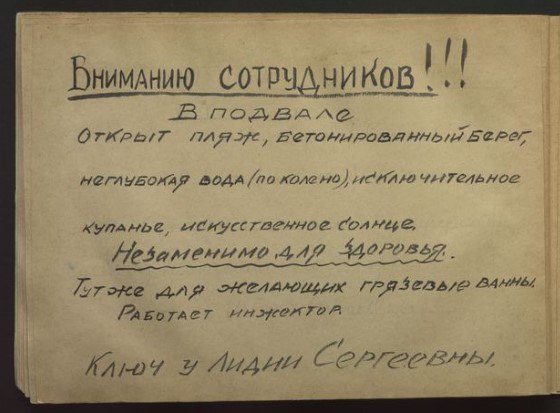 Вниманию сотрудников!!!
В подвале
открыт пляж, бетонированный берег,
неглубокая вода (по колено), исключительное
купанье, искусственное солнце.
Незаменимо для здоровья.
Тут же для желающих грязевые ванны.
Работает инжектор.
Ключ у Лидии Сергеевны.